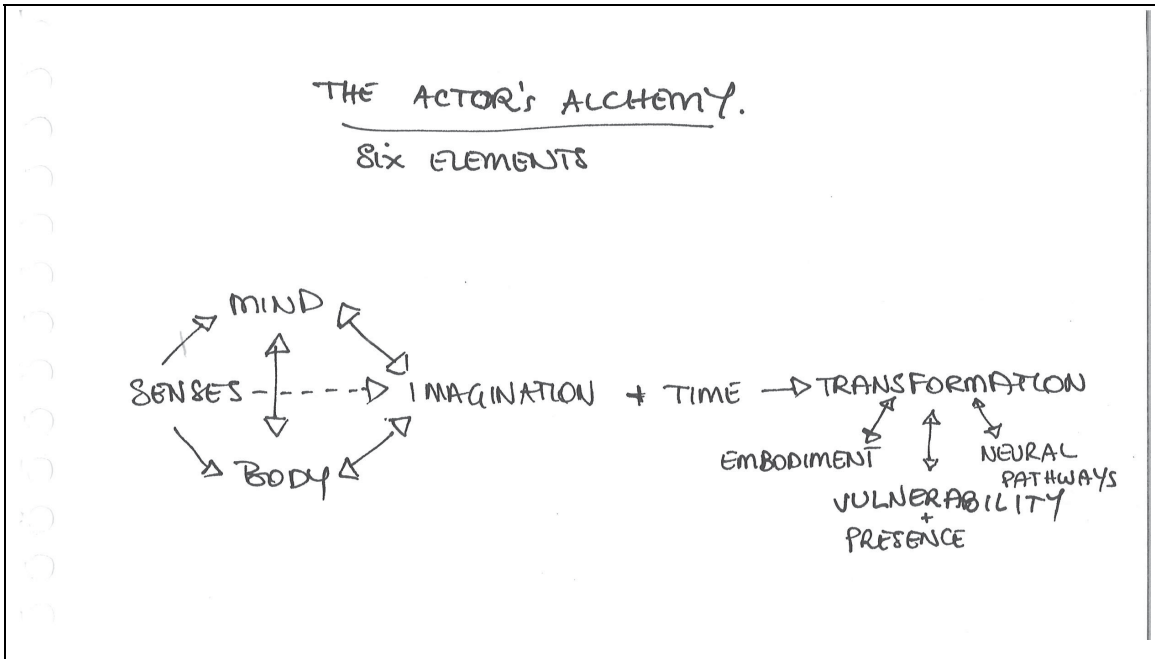 THE ACTOR'S ALCHEMY.
SIX ELEMENTS
MIND
SENSES IMAGINATION + TIME TRANSFORMATION
BODY
EMBODIMENT
NEURAL
PATHWAYS
VULNERABILITY
+
PRESENCE